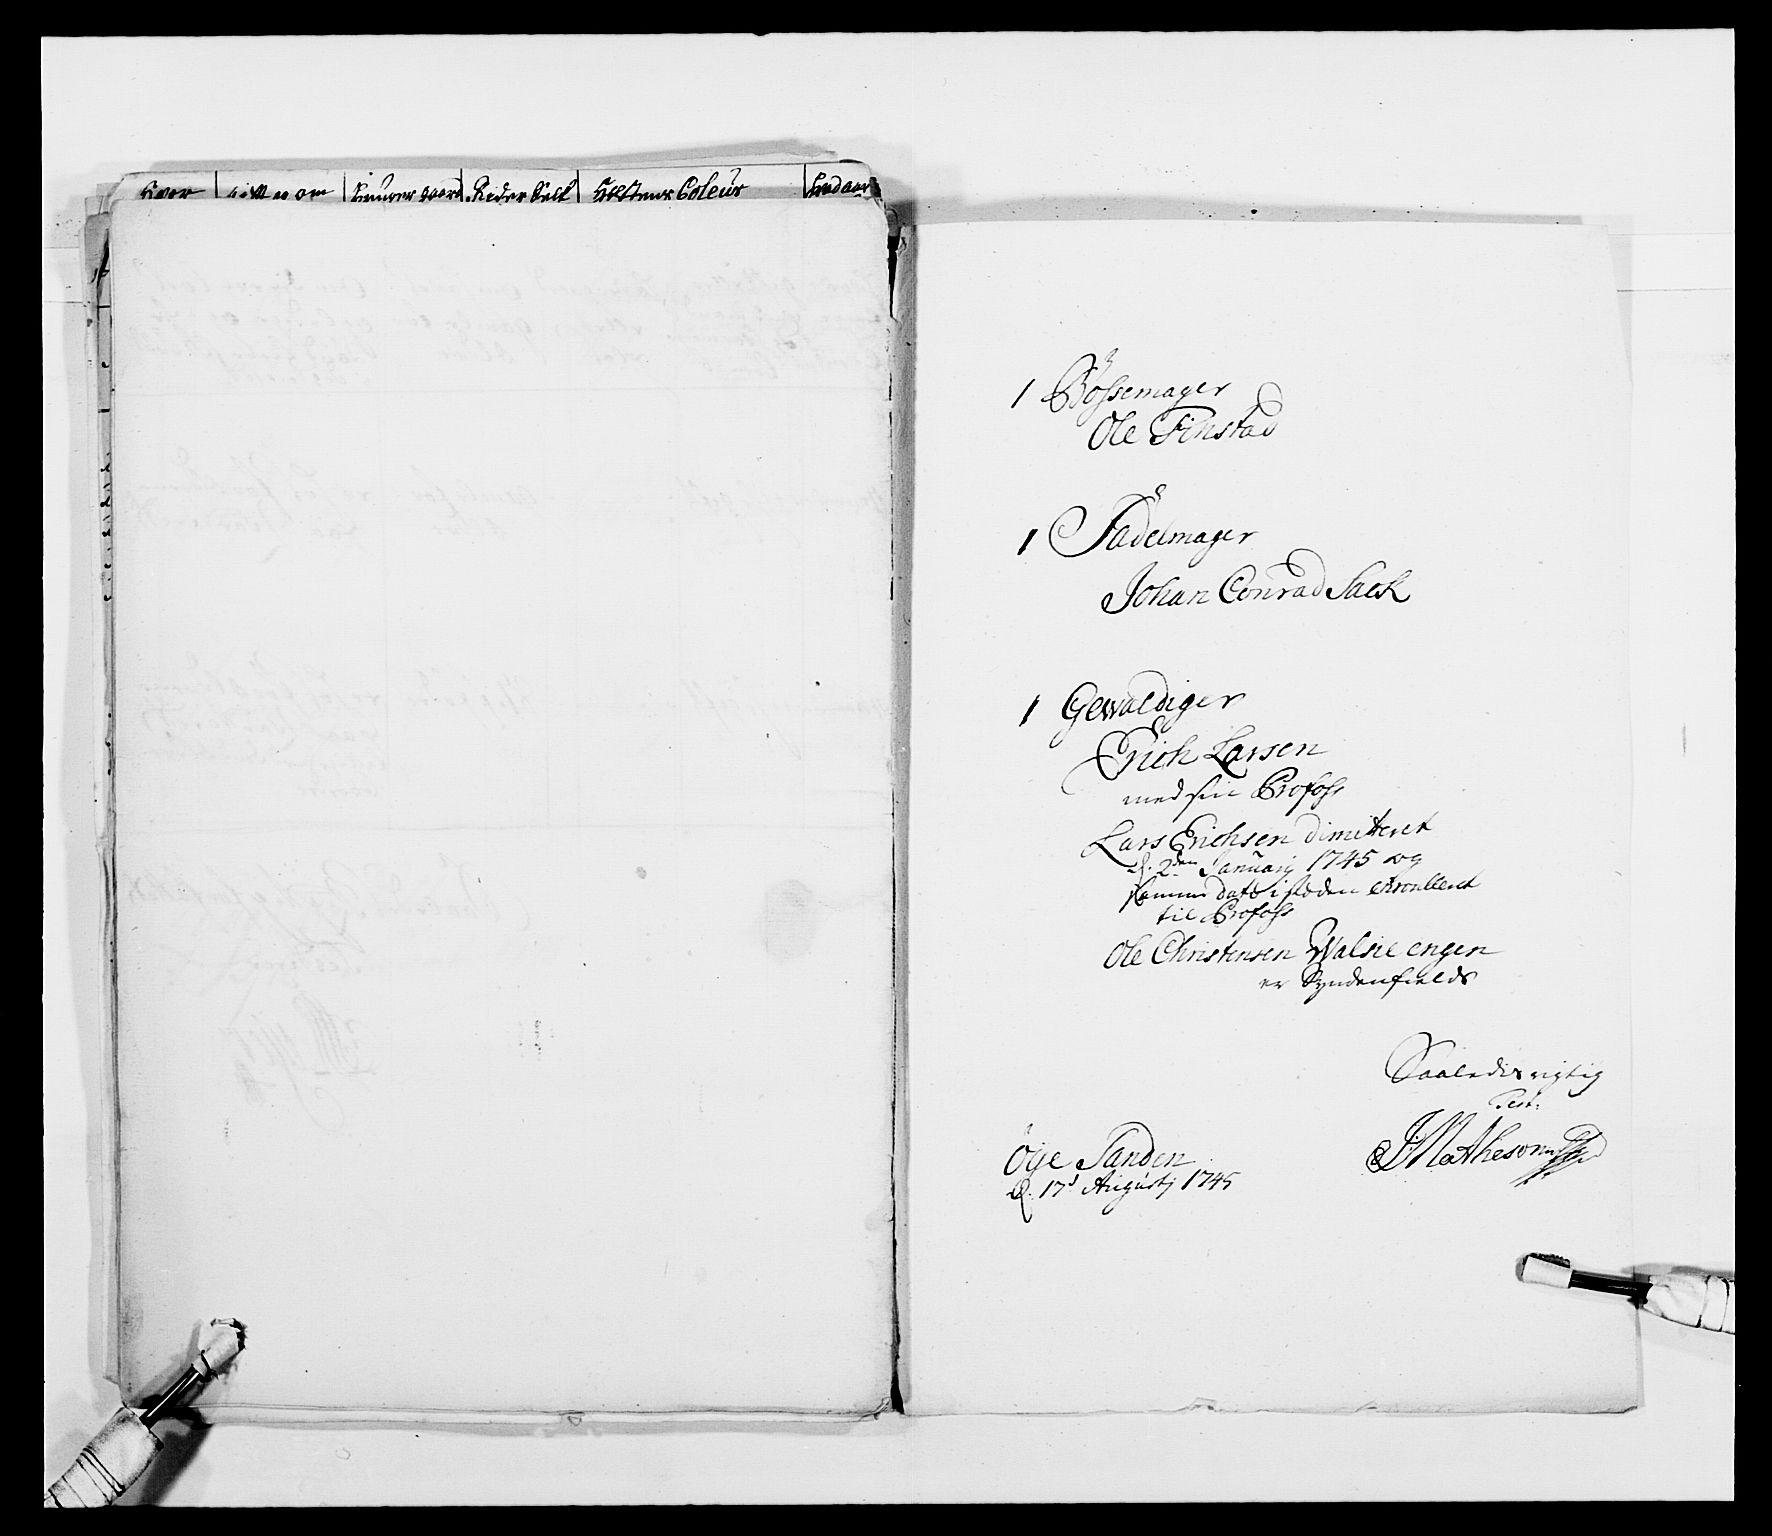 Hvor
Gift og om
Rider Selt
Hestens Coleur
1 Bössemager
Ole Finstad
1 Sadelmager
Johan Conrad Sack
1 Gewaldiger
Erich Larsen
med sin Profoss
Lars Erichsen dimitteret
d. 2den Januarij 1745 og
samme dato i steden enroulleret
til Profoss
Ole Christensen Walsie engen
er Syndenfields
Saaledis rigtig
Test:
JMathesonn
Öÿe Sanden
d. 17d Augustj 1745